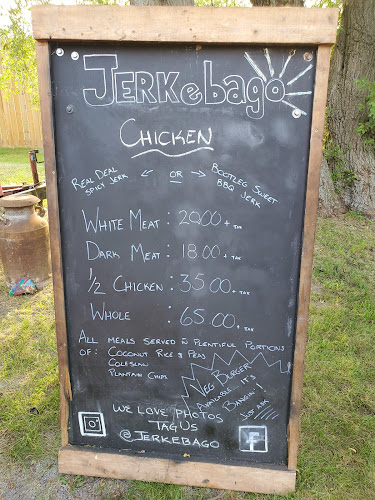 JERKebago
CHICKEN
REAL DEAL
SPICY JERK
← OR →
BOOTLEG SWEET
BBQ JERK
WHITE MEAT : 20.00 + TAX
DARK MEAT : 18.00 + TAX
1/2 CHICKEN : 35.00 + TAX
WHOLE : 65.00 + TAX
ALL MEALS SERVED IN PLENTIFUL PORTIONS
OF: COCONUT RICE & PEAS
COLESLAW
PLANTAIN CHIPS
VEG BURGER
AVAILABLE. IT'S
BANGIN'!
JUST ASK
WE LOVE PHOTOS
TAG US
@JERKEBAGO
f